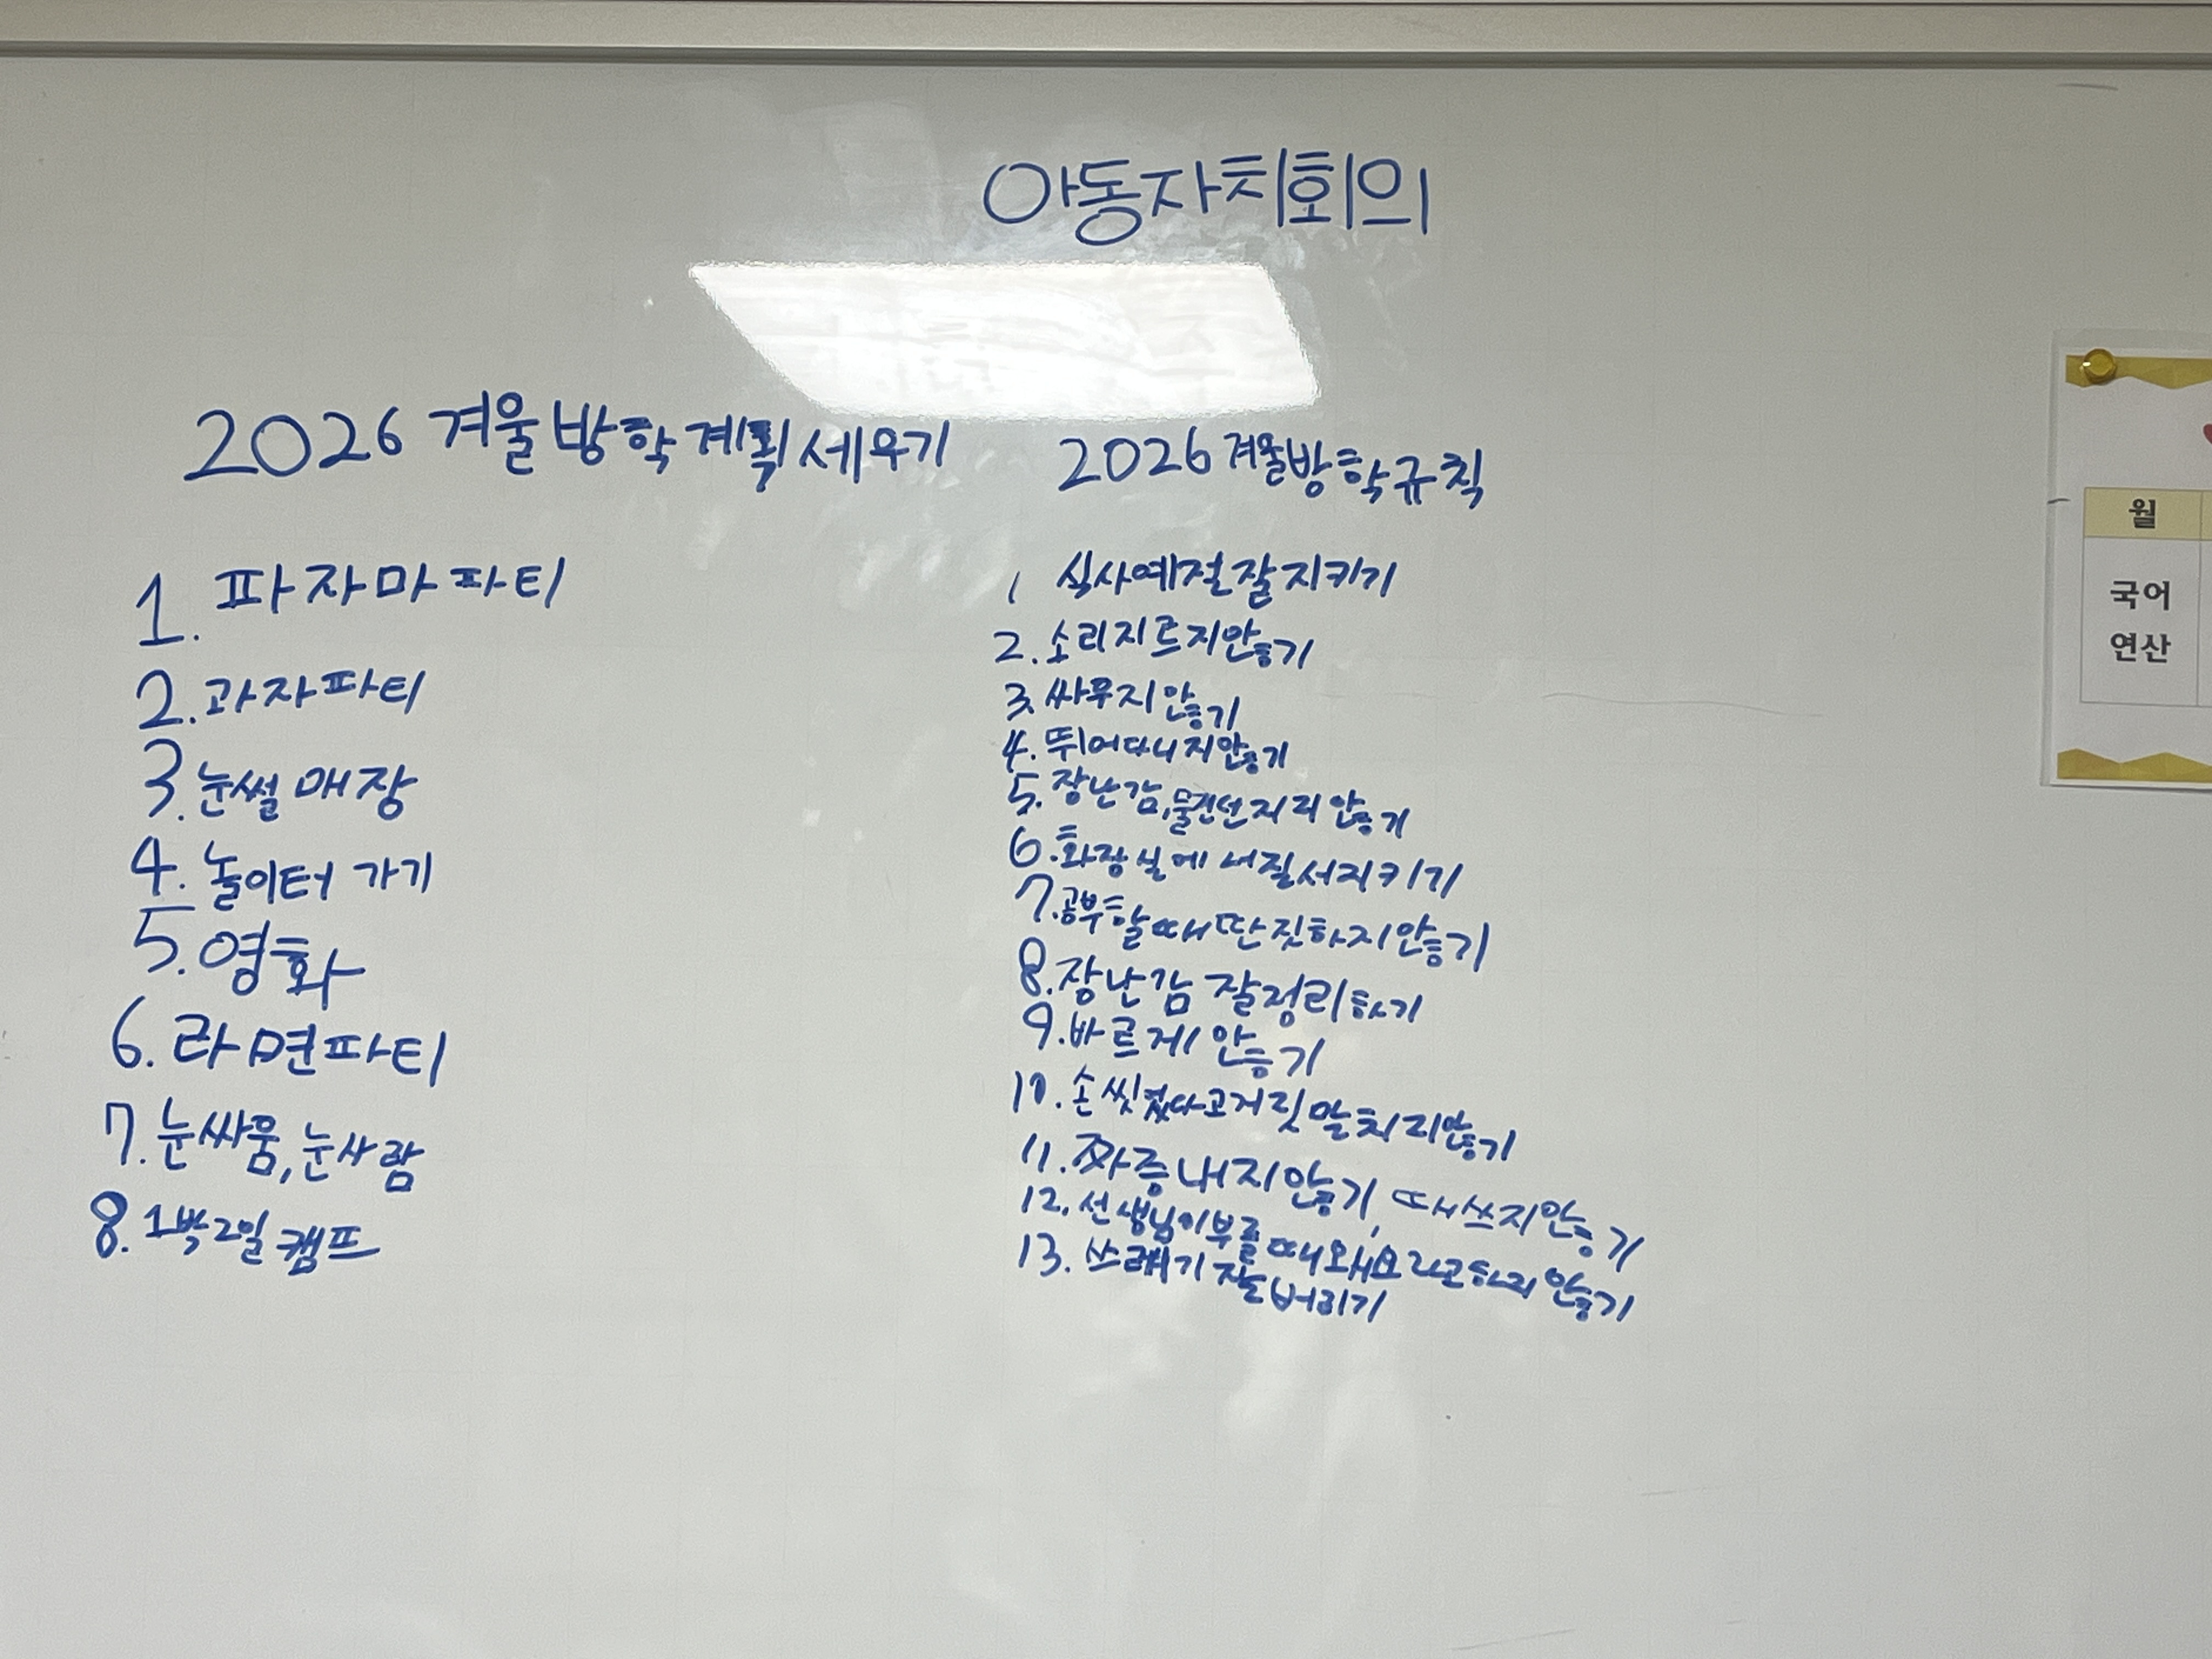 아동자치회의
2026 겨울방학계획세우기
1. 파자마파티
2. 과자파티
3. 눈썰매장
4. 놀이터 가기
5. 영화
6. 라면파티
7. 눈싸움, 눈사람
8. 1박2일 캠프
2026 겨울방학규칙
1 식사예절잘지키기
2. 소리지르지안흥기
3. 싸우지안흥기
4. 뛰어다니지안흥기
5. 장난감,물건던지지안흥기
6. 화장실에서질서지키기
7. 공부할때딴짓하지안흥기
8. 장난감 잘정리하기
9. 바르게 안흥기
10. 손씻었다고거짓말치지안흥기
11. 짜증내지안흥기, 떼쓰지안흥기
12. 선생님이부를때왜요라고하지안흥기
13. 쓰레기 잘버리기
월
국어
연산